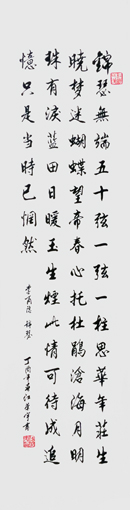 錦瑟無端五十弦一弦一柱思華年莊生
曉夢迷蝴蝶望帝春心托杜鵑滄海月明
珠有淚藍田日暖玉生煙此情可待成追
憶只是當時已惘然
李商隱 錦瑟
丁酉年